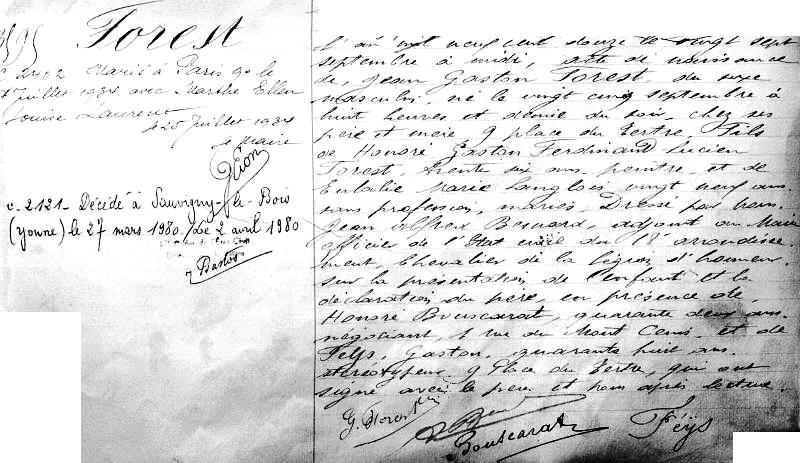 3595
Forest
c. 2402 Marié à Paris 9e le
Juillet 1934 avec Marthe Ellen
Louise Laurent
le 25 Juillet 1934
le Maire
c. 2121 - Décédé à Sauvigny-le-Bois
(Yonne) le 27 mars 1980. Le 2 avril 1980
Bastos
L'an mil neuf cent douze le vingt sept
septembre à midi, acte de naissance
de, Jean Gaston Forest du sexe
masculin, né le vingt cinq septembre à
huit heures et demie du soir, chez ses
père et mère 9 place du Tertre. Fils
de Honoré Gaston Ferdinand Lucien
Forest, trente six ans, peintre, et de
Eulalie Marie Langlois, vingt neuf ans,
sans profession, mariés. Dressé par nous,
Jean Alfred Besnard, adjoint au Maire
officier de l'Etat civil du 18e arrondisse
ment, Chevalier de la Légion d'honneur,
sur la présentation de l'enfant et la
déclaration du père, en présence de,
Honoré Bouscarat, quarante deux ans,
négociant, 1 rue du Mont Cenis, et de
Feÿs, Gaston, quarante huit ans,
stéréotypeur, 9 Place du Tertre, qui ont
signé avec le père et nous après lecture.
G. Forest
Bouscarat
Féÿs